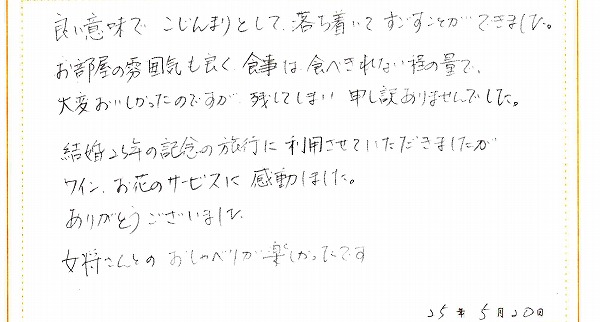 良い意味で こじんまりとして、落ち着いて すごすことができました。
お部屋の雰囲気も良く、食事は、食べきれない程の量で、
大変おいしかったのですが 残してしまい 申し訳ありませんでした。
結婚25年の記念の旅行に 利用させていただきましたが
ワイン、お花のサービスに 感動しました。
ありがとうございました。
女将さんとの おしゃべりが楽しかったです
25年 5月20日